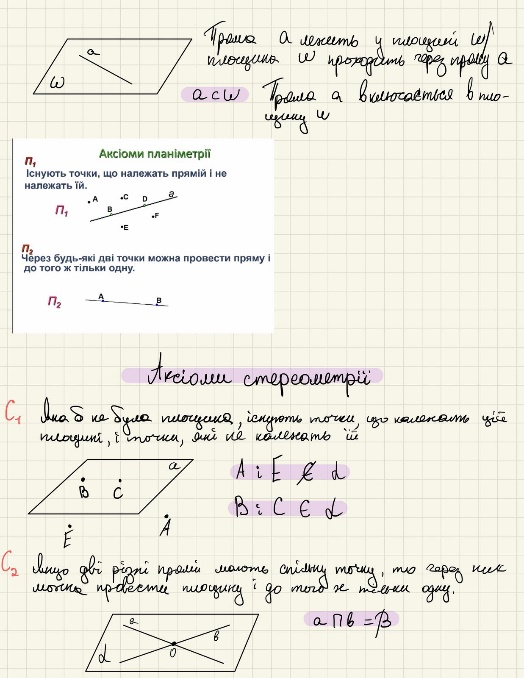 a
ω
Пряма a лежить у площині ω/
площина ω проходить через пряму a
a⊂ω Пряма a включається в пло-
щину ω
Аксіоми планіметрії
П₁
Існують точки, що належать прямій і не
належать їй.
П₁
A
C
B
D
a
F
E
П₂
Через будь-які дві точки можна провести пряму і
до того ж тільки одну.
П₂
A
B
Аксіоми стереометрії
C₁ Яка б не була площина, існують точки, що належать цій
площині, і точки, які не належать їй
a
B
C
E
A
A і E ∉ α
B і C ∈ α
C₂ Якщо дві різні прямі мають спільну точку, то через них
можна провести площину і до того ж тільки одну.
a
в
O
α
a∩в=β